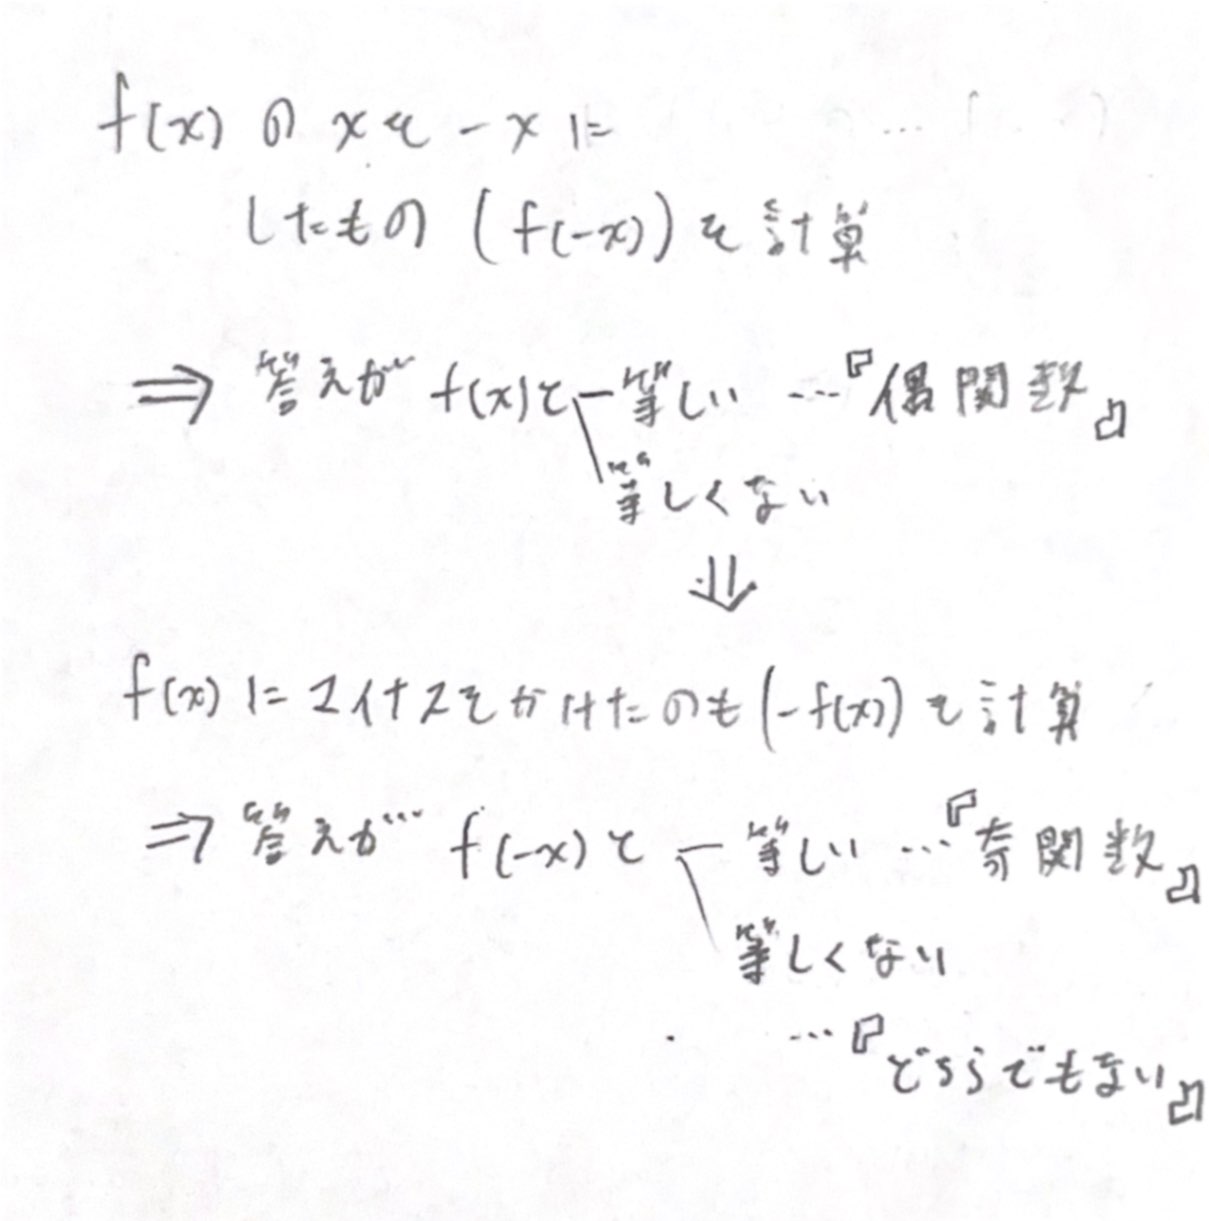 f(x) の xを -x に
したもの (f(-x)) を 計算
⇒ 答えが f(x)と 等しい …『偶関数』
等しくない
⇓
f(x) に マイナスをかけたのも (-f(x)) を計算
⇒ 答えが f(-x) と 等しい …『奇関数』
等しくない
…『どちらでもない』